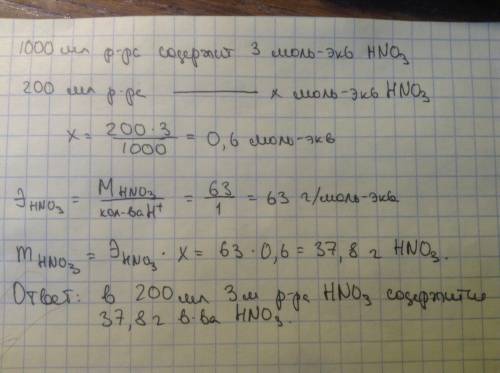 1000 мл р-ра содержит 3 моль-экв HNO₃
200 мл р-ра ——— x моль-экв HNO₃
x = 200·3/1000 = 0,6 моль-экв
Э HNO₃ = M HNO₃/кол-ва H⁺ = 63/1 = 63 г/моль-экв
m HNO₃ = Э HNO₃ · x = 63·0,6 = 37,8 г HNO₃.
Ответ: в 200 мл 3м р-ра HNO₃ содержится
37,8 г в-ва HNO₃.